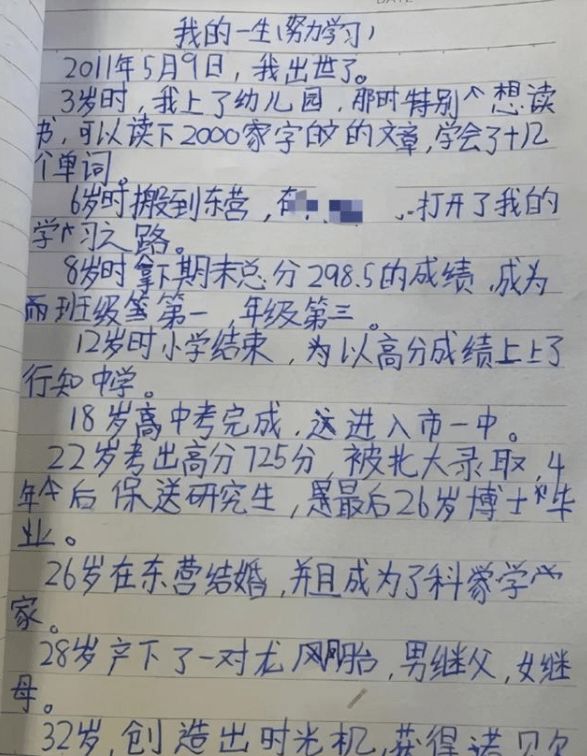 我的一生(努力学习)
2011年5月9日,我出世了。
3岁时,我上了幼儿园,那时特别想读
书,可以读下2000家字的文章,学会了十几
个单词。
6岁时搬到东营,在 打开了我的
学习之路。
8岁时拿下期末总分298.5的成绩,成为
班级第一,年级第三。
12岁时小学结束,为以高分成绩上上了
行知中学。
18岁高中考完成,这进入市一中。
22岁考出高分725分,被北大录取,4
年后保送研究生,最后26岁博士毕
业。
26岁在东营结婚,并且成为了科学
家。
28岁产下了一对龙凤胎,男继父,女继
母。
32岁,创造出时光机,获得诺贝尔